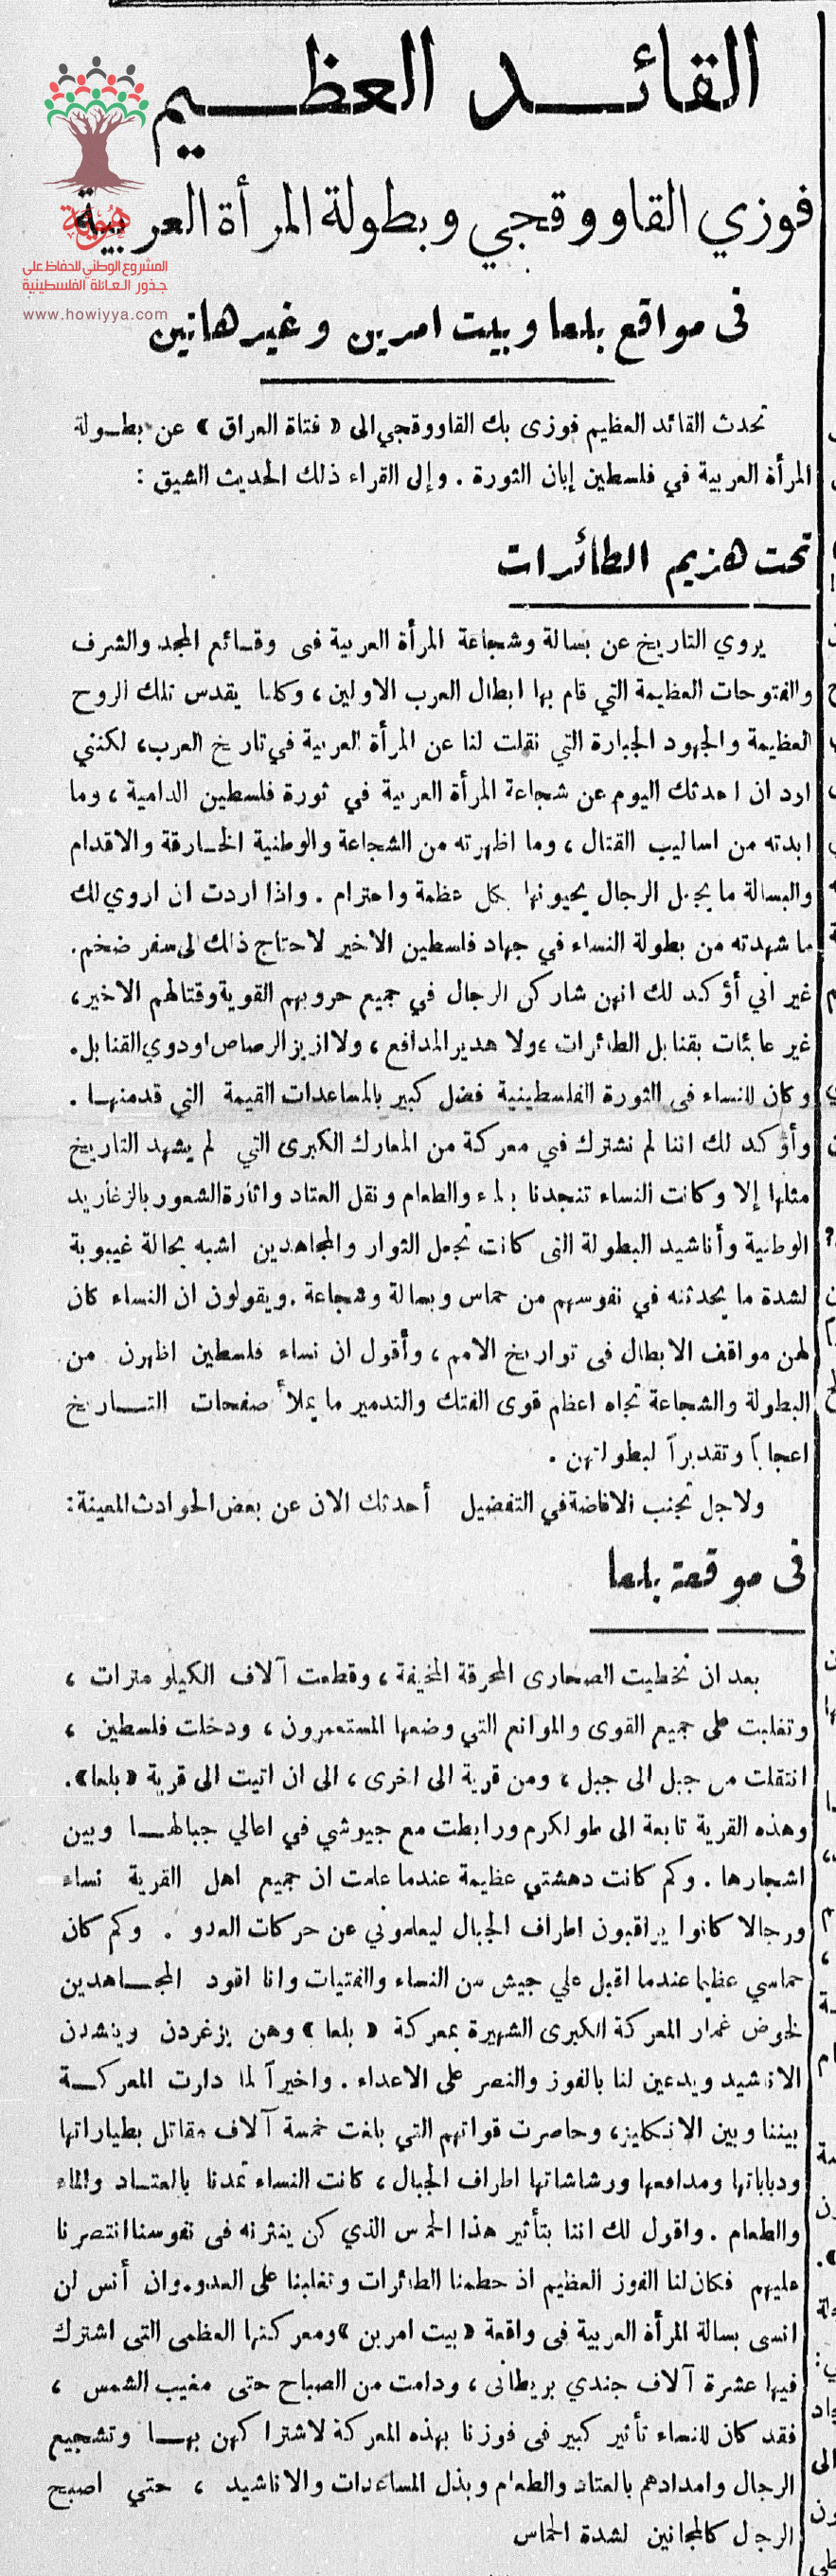 القائد العظيم
فوزي القاووقجي وبطولة المرأة العربية
هوية
المشروع الوطني للحفاظ على
جذور العائلة الفلسطينية
www.howiyya.com
فى مواقع بلعا وبيت امرين وغير هاتين
تحدث القائد العظيم فوزى بك القاووقجي الى « فتاة العراق » عن بطولة
المرأة العربية في فلسطين إبان الثورة . وإلى القراء ذلك الحديث الشيق :
تحت هزيم الطائرات
يروي التاريخ عن بسالة وشجاعة المرأة العربية فى وقائع المجد والشرف
والفتوحات العظيمة التي قام بها ابطال العرب الاولين ، وكلنا يقدس تلك الروح
العظيمة والجهود الجبارة التي نقلت لنا عن المرأة العربية في تاريخ العرب، لكنني
ارد ان احدثك اليوم عن شجاعة المرأة العربية في ثورة فلسطين الدامية ، وما
ابدته من اساليب القتال ، وما اظهرته من الشجاعة والوطنية الخارقة والاقدام
والبسالة ما يجعل الرجال يحيونها بكل عظمة واحترام . واذا اردت ان اروي لك
ما شهدته من بطولة النساء في جهاد فلسطين الاخير لاحتاج ذلك الى سفر ضخم.
غير اني أؤكد لك انهن شاركن الرجال في جميع حروبهم القوية وقتالهم الاخير،
غير عابئات بقنابل الطائرات ، ولا هدير المدافع ، ولا ازيز الرصاص او دوي القنابل.
وكان للنساء فى الثورة الفلسطينية فضل كبير بالمساعدات القيمة التي قدمنها .
وأؤكد لك اننا لم نشترك في معركة من المعارك الكبرى التي لم يشهد التاريخ
مثلها إلا وكانت النساء تنجدنا بالماء والطعام ونقل العتاد واثارة الشعور بالزغاريد
الوطنية وأناشيد البطولة التى كانت تجعل الثوار والمجاهدين اشبه بحالة غيبوبة
لشدة ما يحدثنه في نفوسهم من حماس وبسالة وشجاعة . ويقولون ان النساء كان
لهن مواقف الابطال فى تواريخ الامم ، وأقول ان نساء فلسطين اظهرن من
البطولة والشجاعة تجاه اعظم قوى الفتك والتدمير ما يملأ صفحات التاريخ
اعجاباً وتقديراً لبطولتهن .
ولاجل تجنب الافاضة في التفضيل أحدثك الان عن بعض الحوادث المعينة:
فى موقعة بلعا
بعد ان تخطيت الصحارى المحرقة المخيفة ، وقطعت آلاف الكيلو مترات ،
وتغلبت على جميع القوى والموانع التي وضعها المستعمرون ، ودخلت فلسطين ،
انتقلت من جبل الى جبل ، ومن قرية الى اخرى ، الى ان اتيت الى قرية « بلعا».
وهذه القرية تابعة الى طولكرم ورابطت مع جيوشي في اعالي جبالها وبين
اشجارها . وكم كانت دهشتي عظيمة عندما علمت ان جميع اهل القرية نساء
ورجالا كانوا يراقبون اطراف الجبال ليعلموني عن حركات العدو . وكم كان
حماسي عظيما عندما اقبل علي جيش من النساء والفتيات وانا اقود المجاهدين
لخوض غمار المعركة الكبرى الشهيرة بمعركة « بلعا » وهن يزغردن وينشدن
الاناشيد ويدعين لنا بالفوز والنصر على الاعداء . واخيراً لما دارت المعركة
بيننا وبين الانكليز، وحاصرت قواتهم التي بلغت خمسة آلاف مقاتل بطياراتها
ودباباتها ومدافعها ورشاشاتها اطراف الجبال ، كانت النساء تمدنا بالعتاد والماء
والطعام . واقول لك اننا بتأثير هذا الحماس الذي كن ينثرنه فى نفوسنا انتصرنا
عليهم فكان لنا الفوز العظيم اذ حطمنا الطائرات وتغلبنا على العدو. وان أنس لن
انسى بسالة المرأة العربية فى واقعة « بيت امرين » ومعركتها العظمى التى اشترك
فيها عشرة آلاف جندي بريطانى ، ودامت من الصباح حتى مغيب الشمس ،
فقد كان للنساء تأثير كبير فى فوزنا بهذه المعركة لاشتراكهن بها وتشجيع
الرجال وامدادهم بالعتاد والطعام وبذل المساعدات والاناشيد ، حتي اصبح
الرجال كالمجانين لشدة الحماس